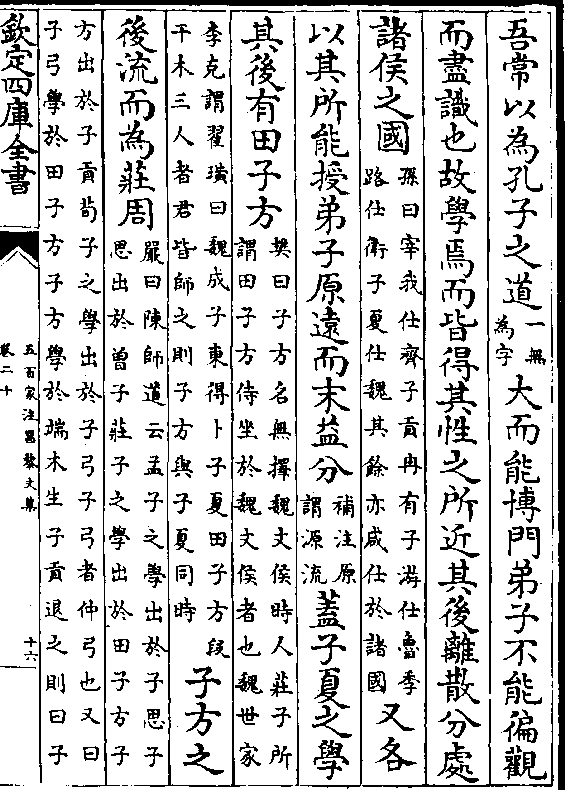 吾常以為孔子之道一無為字大而能博門弟子不能徧觀
而盡識也故學焉而皆得其性之所近其後離散分處
諸侯之國孫曰宰我仕齊子貢冉有子游仕魯季路仕衛子夏仕魏其餘亦咸仕於諸國又各
以其所能授弟子原遠而末益分補注原謂源流蓋子夏之學
其後有田子方樊曰子方名無擇魏文侯時人莊子所謂田子方侍坐於魏文侯者也魏世家
李克謂翟璜曰魏成子東得卜子夏田子方段干木三人者君皆師之則子方與子夏同時子方之
後流而為莊周嚴曰陳師道云孟子之學出於子思子思出於曾子莊子之學出於田子方子
方出於子貢荀子之學出於子弓子弓者仲弓也又曰子弓學於田子方子方學於端木生子貢退之則曰子
欽定四庫全書
五百家注昌黎文集
卷二十
十六